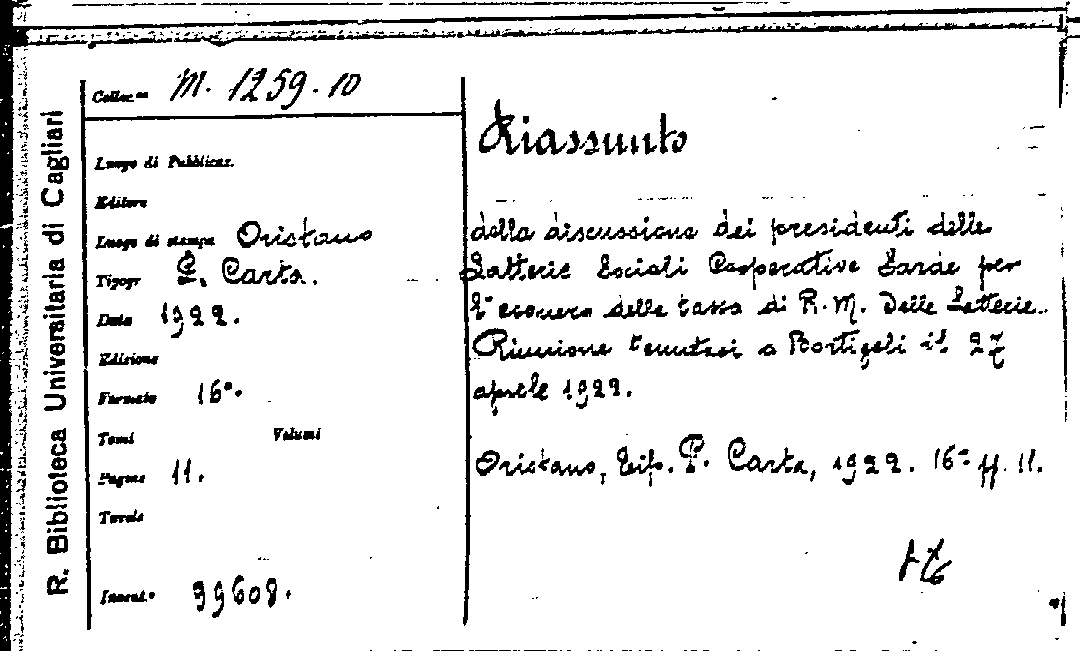 R. Biblioteca Universitaria di Cagliari
Colloc.ne M. 1259.10
Luogo di Pubblicaz.
Editore
Luogo di stampa Oristano
Tipogr P. Carta.
Data 1922.
Edizione
Formato 16°.
Tomi Volumi
Pagine 11.
Tavole
Invent.° 99608.
Riassunto
della discussione dei presidenti delle
Latterie Sociali Cooperative Sarde per
l'esonero della tassa di R. M. delle Latterie.
Riunione tenutasi a Bortigali il 27
aprile 1922.
Oristano, Tip. P. Carta, 1922. 16° pp. 11.